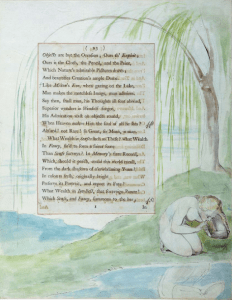 ( 95 )
Objects are but th' Occasion; Ours th' Exploit;
Ours is the Cloth, the Pencil, and the Paint,
Which Nature's admirable Picture draws;
And beautifies Creation's ample Dome.
Like Milton's Eve, when gazing on the Lake,
Man makes the matchless Image, man admires:
Say then, Shall man, his Thoughts all sent abroad,
Superior wonders in Himself forgot,
His Admiration waste on objects round,
When Heaven makes Him the Soul of all he Sees?
Absurd! not Rare! so Great, so Mean, is man.
What Wealth in Senses such as These! What Wealth
In Fancy, fir'd to form a fairer Scene
Than Sense surveys! In Memory's firm Record,
Which, should it perish, could this World recall,
From the dark Shadows of
In Colours fresh, originally bright
Preserve its Portrait, and report its Fate!
What Wealth in Intellect, that Sovereign Power!
Which Sense, and Fancy, summons to the Bar;